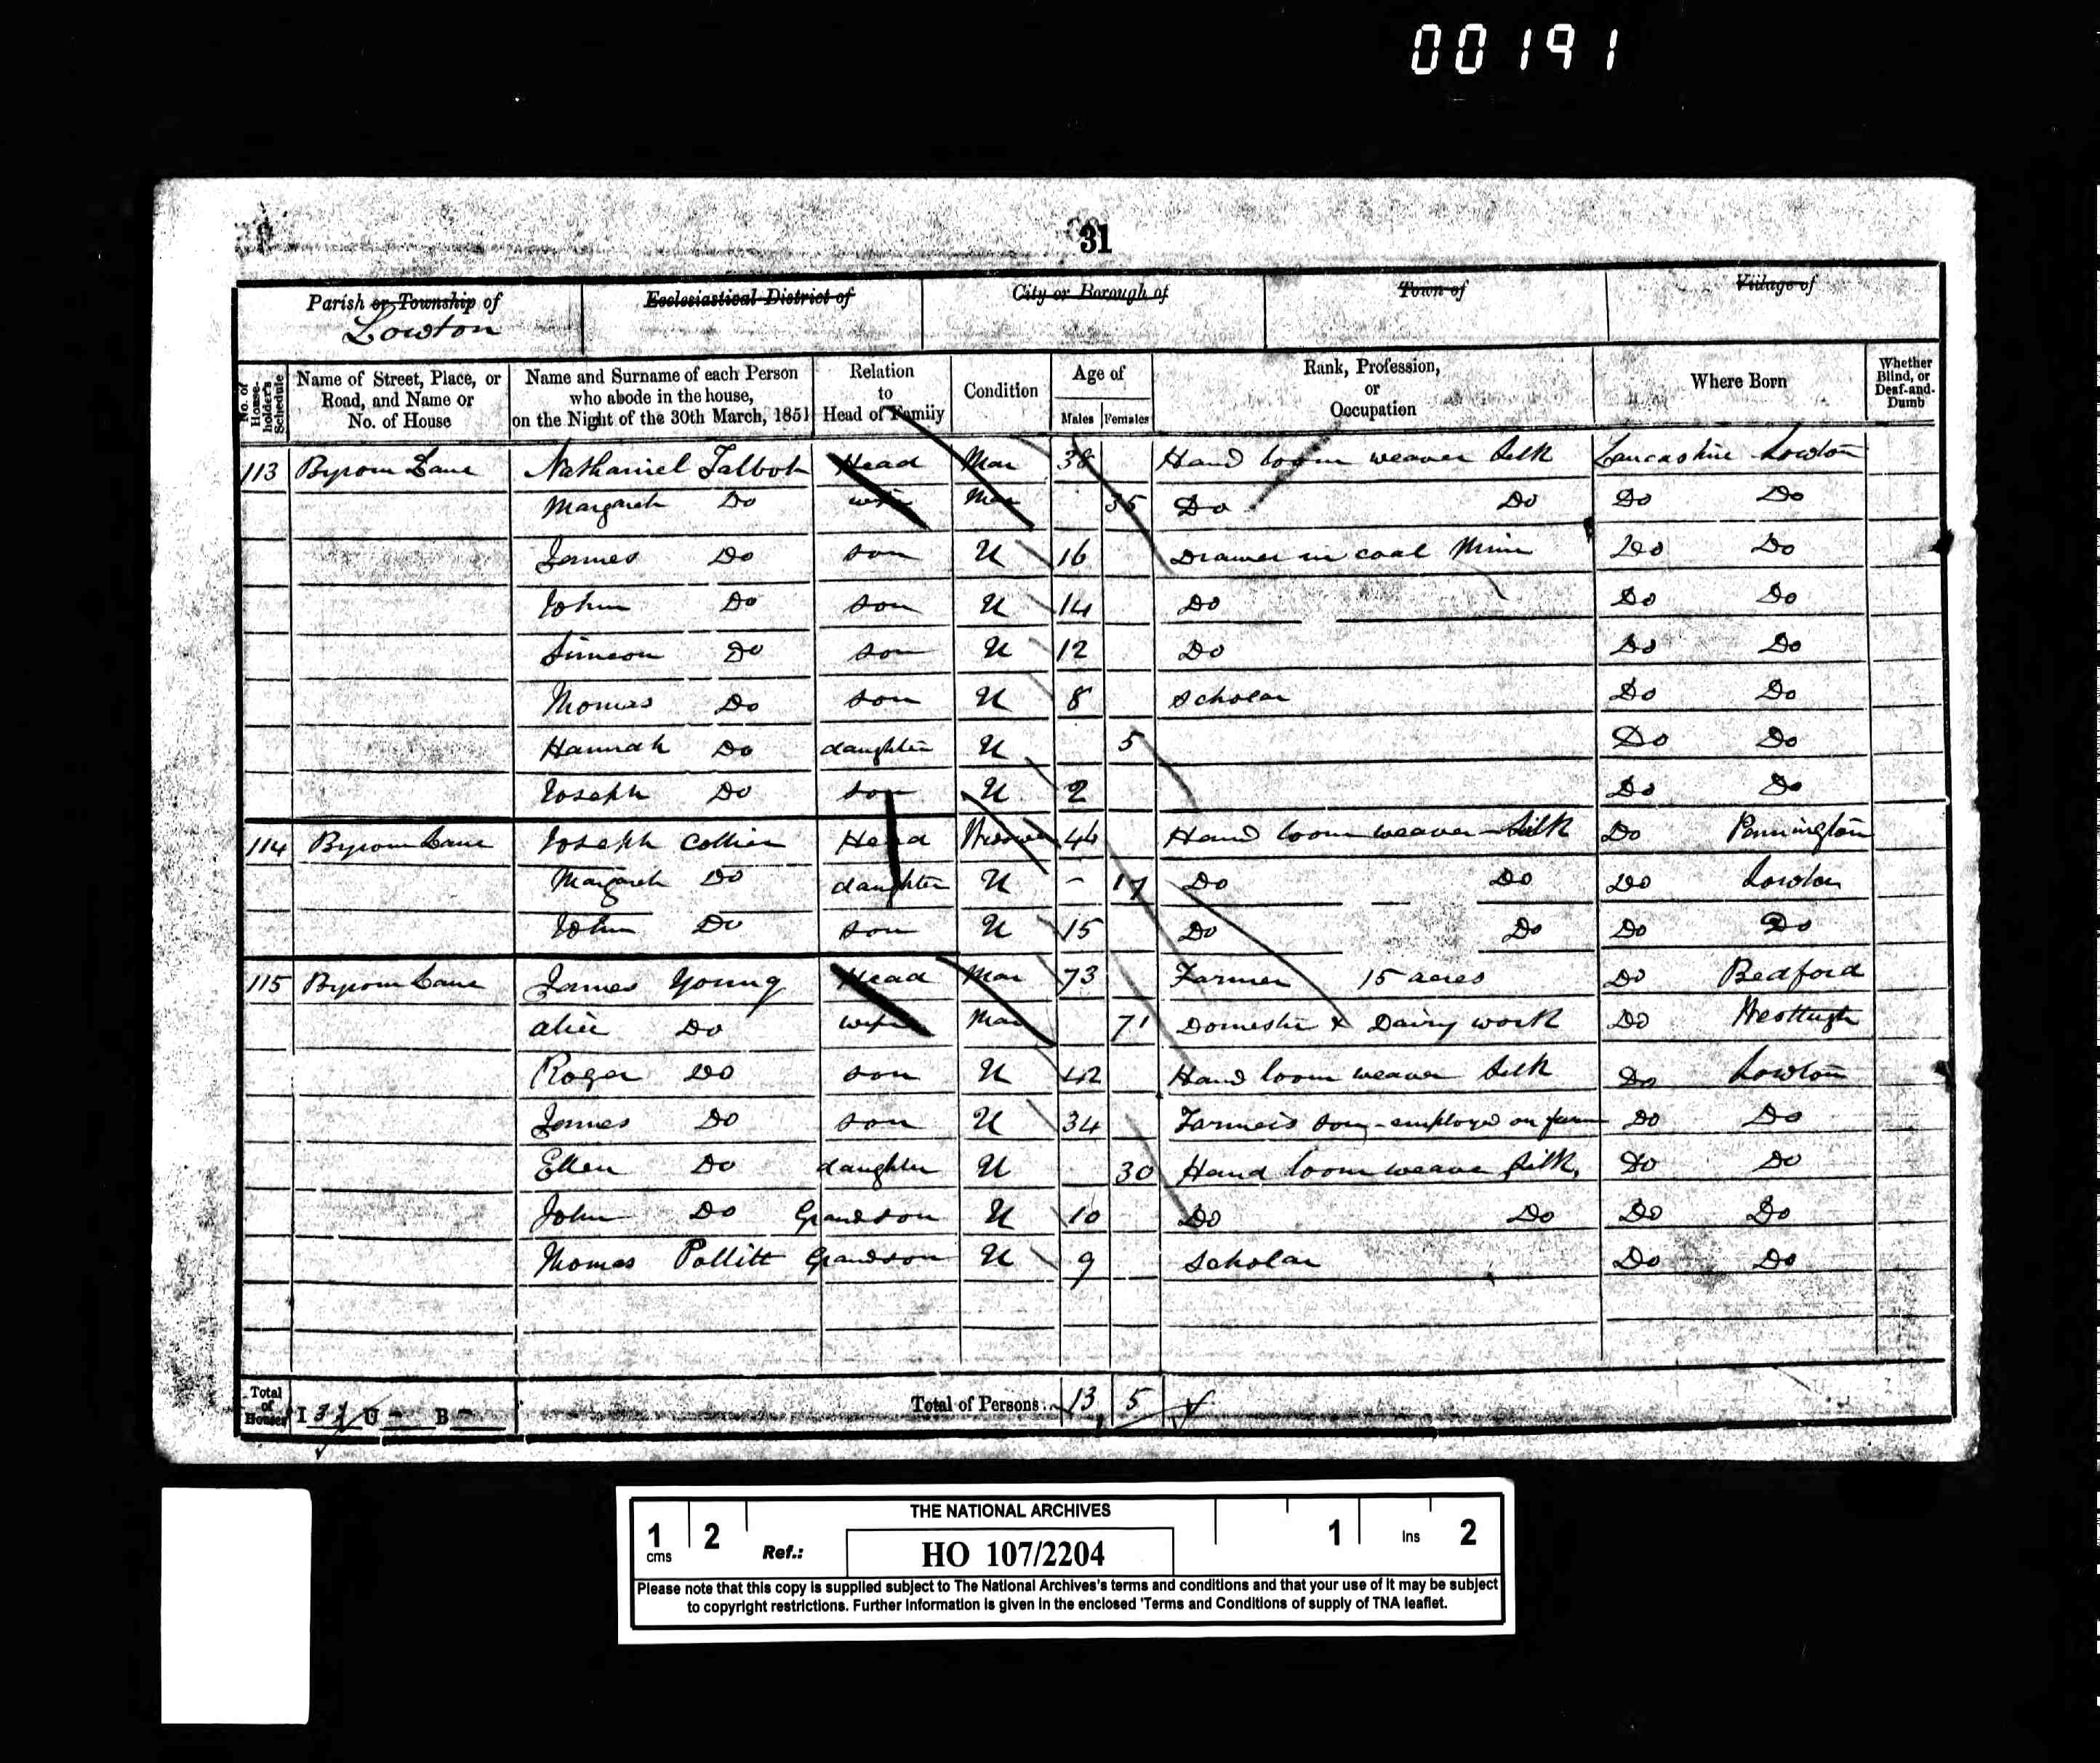 00191
31
Parish or Township of Ecclesiastical District of City or Borough of Town of Village of
Lowton
No. of House-holder's Schedule Name of Street, Place, or Road, and Name or No. of House Name and Surname of each Person who abode in the house, on the Night of the 30th March, 1851 Relation to Head of Family Condition Age of Males Females Rank, Profession, or Occupation Where Born Whether Blind, or Deaf-and-Dumb
113 Byrom Lane Nathaniel Talbot Head Mar 38 Hand loom weaver Silk Lancashire Lowton
Margaret Do wife Mar 35 Do Do Do Do
James Do son U 16 Drawer in coal Mine Do Do
John Do son U 14 Do Do Do
Simeon Do son U 12 Do Do Do
Thomas Do son U 8 Scholar Do Do
Hannah Do daughter U 5 Do Do
Joseph Do son U 2 Do Do
114 Byrom Lane Joseph Collier Head Widower 44 Hand loom weaver Silk Do Pennington
Margaret Do daughter U - 17 Do Do Do Lowton
John Do son U 15 Do Do Do Do
115 Byrom Lane James Young Head Mar 73 Farmer 15 acres Do Bedford
alice Do wife Mar 71 Domestic & Dairy work Do
Roger Do son U 42 Hand loom weaver Silk Do Lowton
James Do son U 34 Farmers son-employed on farm Do Do
Ellen Do daughter U 30 Hand loom weaver Silk, Do Do
John Do Grandson U 10 Do Do Do Do
Thomas Pollitt Grandson U 9 Scholar Do Do
Total of Houses I 3 U - B - Total of Persons.. 13 5
THE NATIONAL ARCHIVES
1 cms 2 Ref.: HO 107/2204 1 Ins 2
Please note that this copy is supplied subject to The National Archives's terms and conditions and that your use of it may be subject
to copyright restrictions. Further information is given in the enclosed 'Terms and Conditions of supply of TNA leaflet.